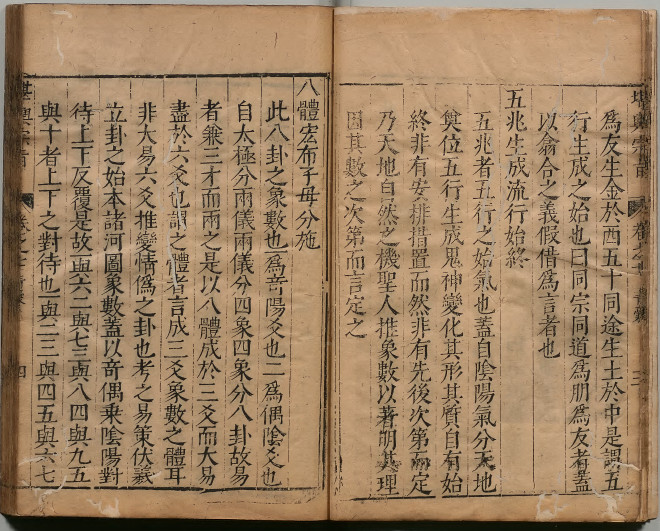 爲友生金於西五十同途生土於中是謂五
行生成之始也曰同宗同道爲朋爲友者蓋
以翕合之義假借爲言者也
五兆生成流行始終
五兆者五行之始氣也蓋自陰陽氣分天地
奠位五行生成鬼神變化其形其質自有始
終非有安排措置而然非有先後次第而定
乃天地自然之機聖人推象數以著明其理
因其數之次第而言定之
八體宏布子母分施
此八卦之象數也一爲竒陽爻也二爲偶陰爻也
自太極分兩儀兩儀分四象四象分八卦故易
者兼三才而兩之是以八體成於三爻而大易
盡於六爻也謂之體者言成三爻象數之體耳
非大易六爻推變情僞之卦也考之易策伏羲
立卦之始本諸河圖象數蓋以竒偶乘陰陽對
待上下反覆是故一與六二與七三與八四與九五
與十者上下之對待也一與二三與四五與六七
堪輿宗旨
卷之
四